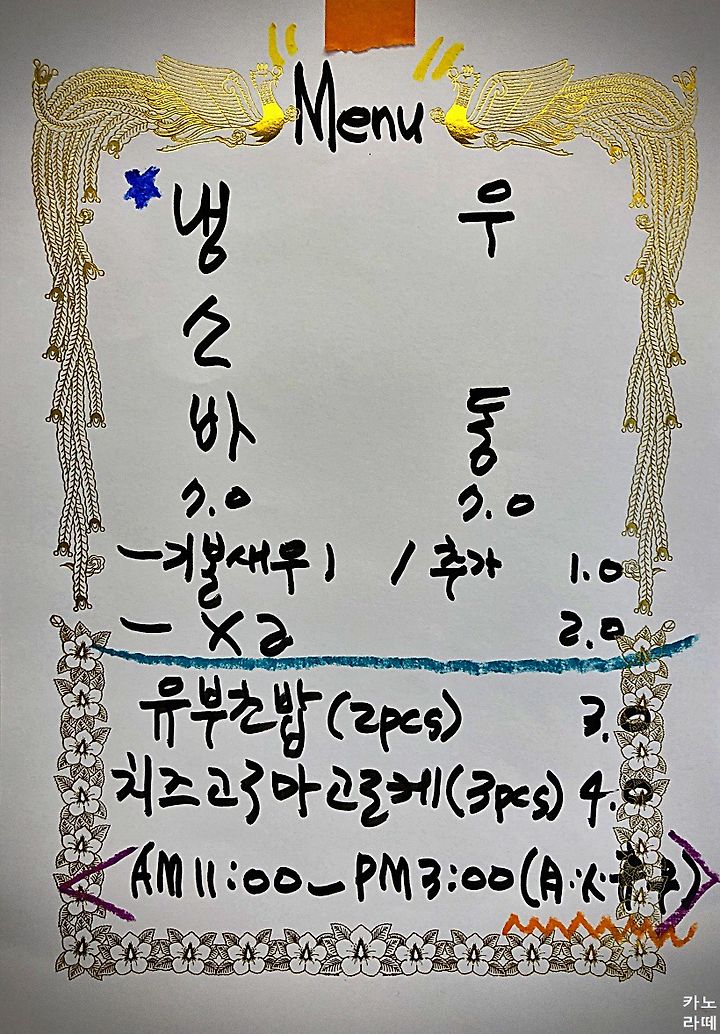 Menu
냉소바 우동
7.0 7.0
-기본새우1 / 추가 1.0
- x2 2.0
유부초밥(2pcs) 3.0
치즈고구마고로케(3pcs) 4.0
AM 11:00-PM 3:00
카노
라떼